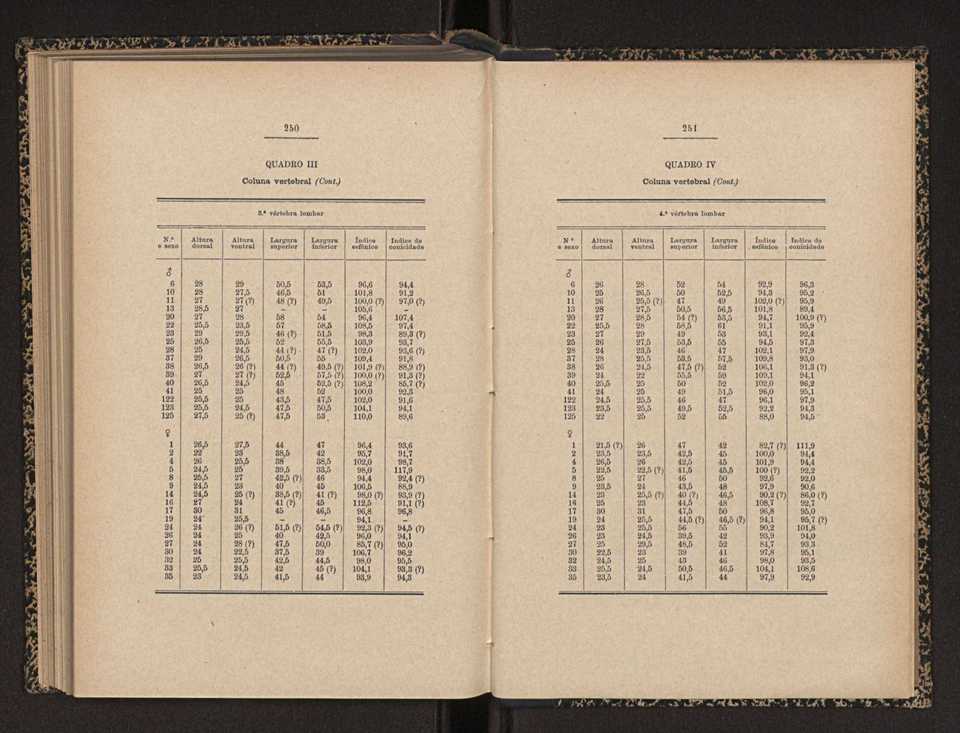 250
QUADRO III
Coluna vertebral (Cont.)
3.ª vértebra lombar
N.º e sexo Altura dorsal Altura ventral Largura superior Largura inferior Índice esfénico Índice de conicidade
♂
6 28 29 50,5 53,5 96,6 94,4
10 28 27,5 46,5 51 101,8 91,2
11 27 27 (?) 48 (?) 49,5 100,0 (?) 97,0 (?)
13 28,5 27 – – 105,6 –
20 27 28 58 54 96,4 107,4
22 25,5 23,5 57 58,5 108,5 97,4
23 29 29,5 46 (?) 51,5 98,3 89,3 (?)
25 26,5 25,5 52 55,5 103,9 93,7
28 25 24,5 44 (?) 47 (?) 102,0 93,6 (?)
37 29 26,5 50,5 55 109,4 91,8
38 26,5 26 (?) 44 (?) 49,5 (?) 101,9 (?) 88,9 (?)
39 27 27 (?) 52,5 57,5 (?) 100,0 (?) 91,3 (?)
40 26,5 24,5 45 52,5 (?) 108,2 85,7 (?)
41 25 25 48 52 100,0 92,3
122 25,5 25 43,5 47,5 102,0 91,6
123 25,5 24,5 47,5 50,5 104,1 94,1
125 27,5 25 (?) 47,5 53 110,0 89,6
♀
1 26,5 27,5 44 47 96,4 93,6
2 22 23 38,5 42 95,7 91,7
4 26 25,5 38 38,5 102,0 98,7
5 24,5 25 39,5 33,5 98,0 117,9
8 25,5 27 42,5 (?) 46 94,4 92,4 (?)
9 24,5 23 40 45 106,5 88,9
14 24,5 25 (?) 38,5 (?) 41 (?) 98,0 (?) 93,9 (?)
16 27 24 41 (?) 45 112,5 91,1 (?)
17 30 31 45 46,5 96,8 96,8
19 24 25,5 – – 94,1 –
24 24 26 (?) 51,5 (?) 54,5 (?) 92,3 (?) 94,5 (?)
26 24 25 40 42,5 96,0 94,1
27 24 28 (?) 47,5 50,0 85,7 (?) 95,0
30 24 22,5 37,5 39 106,7 96,2
32 25 25,5 42,5 44,5 98,0 95,5
33 25,5 24,5 42 45 (?) 104,1 93,3 (?)
35 23 24,5 41,5 44 93,9 94,3
251
QUADRO IV
Coluna vertebral (Cont.)
4.ª vértebra lombar
N.º e sexo Altura dorsal Altura ventral Largura superior Largura inferior Índice esfénico Índice de conicidade
♂
6 26 28 52 54 92,9 96,3
10 25 26,5 50 52,5 94,3 95,2
11 26 25,5 (?) 47 49 102,0 (?) 95,9
13 28 27,5 50,5 56,5 101,8 89,4
20 27 28,5 54 (?) 53,5 94,7 100,9 (?)
22 25,5 28 58,5 61 91,1 95,9
23 27 29 49 53 93,1 92,4
25 26 27,5 53,5 55 94,5 97,3
28 24 23,5 46 47 102,1 97,9
37 28 25,5 53,5 57,5 109,8 93,0
38 26 24,5 47,5 (?) 52 106,1 91,3 (?)
39 24 22 55,5 59 109,1 94,1
40 25,5 25 50 52 102,0 96,2
41 24 25 49 51,5 96,0 95,1
122 24,5 25,5 46 47 96,1 97,9
123 23,5 25,5 49,5 52,5 92,2 94,3
125 22 25 52 55 88,0 94,5
♀
1 21,5 (?) 26 47 42 82,7 (?) 111,9
2 23,5 23,5 42,5 45 100,0 94,4
4 26,5 26 42,5 45 101,9 94,4
5 22,5 22,5 (?) 41,5 45,5 100 (?) 92,2
8 25 27 46 50 92,6 92,0
9 23,5 24 43,5 48 97,9 90,6
14 23 25,5 (?) 40 (?) 46,5 90,2 (?) 86,0 (?)
16 25 23 44,5 48 108,7 92,7
17 30 31 47,5 50 96,8 95,0
19 24 25,5 44,5 (?) 46,5 (?) 94,1 95,7 (?)
24 23 25,5 56 55 90,2 101,8
26 23 24,5 39,5 42 93,9 94,0
27 25 29,5 48,5 52 84,7 93,3
30 22,5 23 39 41 97,8 95,1
32 24,5 25 43 46 98,0 93,5
33 25,5 24,5 50,5 46,5 104,1 108,6
35 23,5 24 41,5 44 97,9 92,9